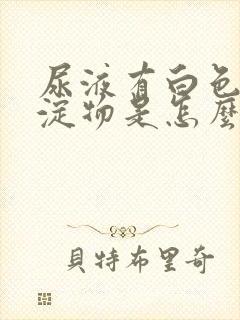 尿液有白色
淀物是怎麼
貝特布里奇